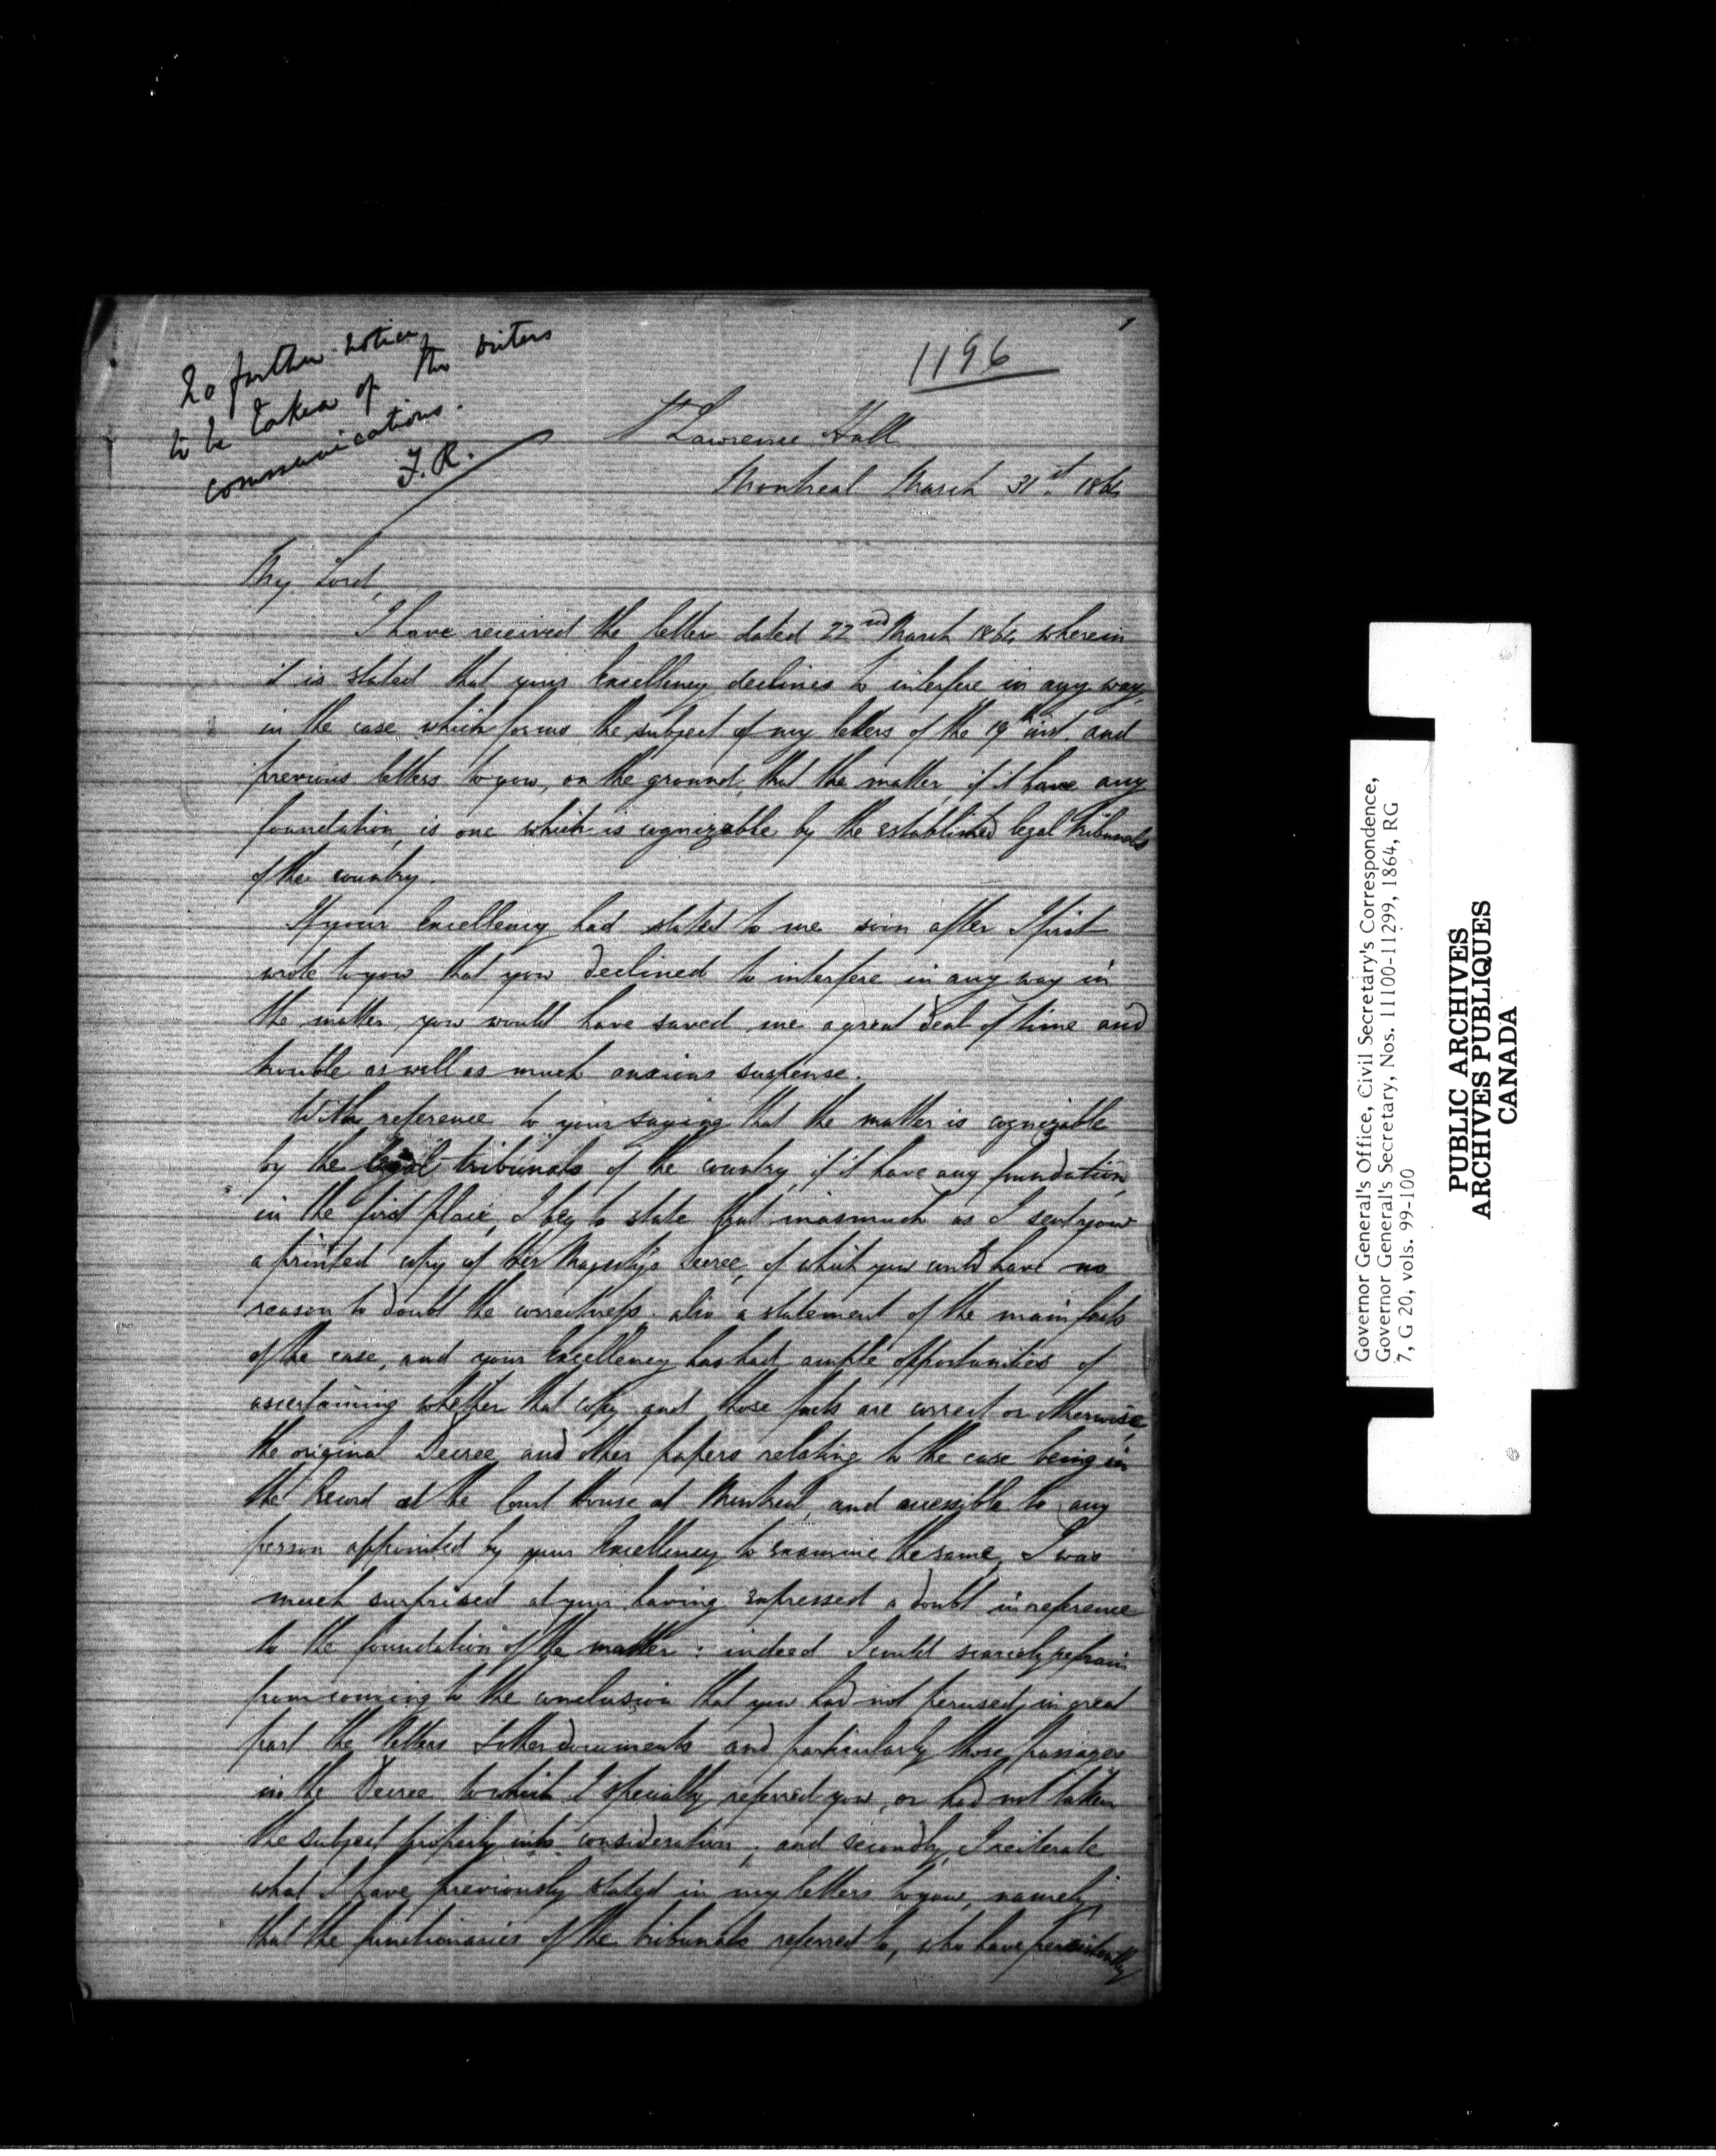 No further notice
to be taken of the writers
communications.
F.R.
1196
St Lawrence Hall
Montreal March 31st 1864
My Lord,
I have received the letter dated 22nd March 1864 wherein
it is stated that your Excellency declines to interfere in any way,
in the case which forms the subject of my letters of the 19th inst. and
previous letters to you, on the ground, that the matter, if it have any
foundation, is one which is cognizable by the established legal tribunals
of the country.
If your Excellency had stated to me soon after I first
wrote to you that you declined to interfere in any way in
the matter, you would have saved me a great deal of time and
trouble as well as much anxious suspense.
With reference to your saying that the matter is cognizable
by the legal tribunals of the country, if it have any foundation,
in the first place, I beg to state that inasmuch as I sent you
a printed copy of Her Majesty's Decree, of which you could have no
reason to doubt the correctness, also a statement of the main facts
of the case, and your Excellency has had ample opportunities of
ascertaining whether that copy and those facts are correct or otherwise,
the original Decree and other papers relating to the case being in
the Record at the Court House at Montreal, and accessible to any
person appointed by your Excellency to examine the same, I was
much surprised at your having expressed a doubt in reference
to the foundation of the matter : indeed I could scarcely refrain
from coming to the conclusion that you had not perused, in great
part the letters & other documents and particularly those passages
in the Decree to which I specially referred you, or had not taken
the subject properly into consideration ; and secondly, I reiterate
what I have previously stated in my letters to you, namely,
that the functionaries of the tribunals referred to, who have persistently
Governor General's Office, Civil Secretary's Correspondence,
Governor General's Secretary, Nos. 11100-11299, 1864, RG
7, G 20, vols. 99-100
PUBLIC ARCHIVES
ARCHIVES PUBLIQUES
CANADA